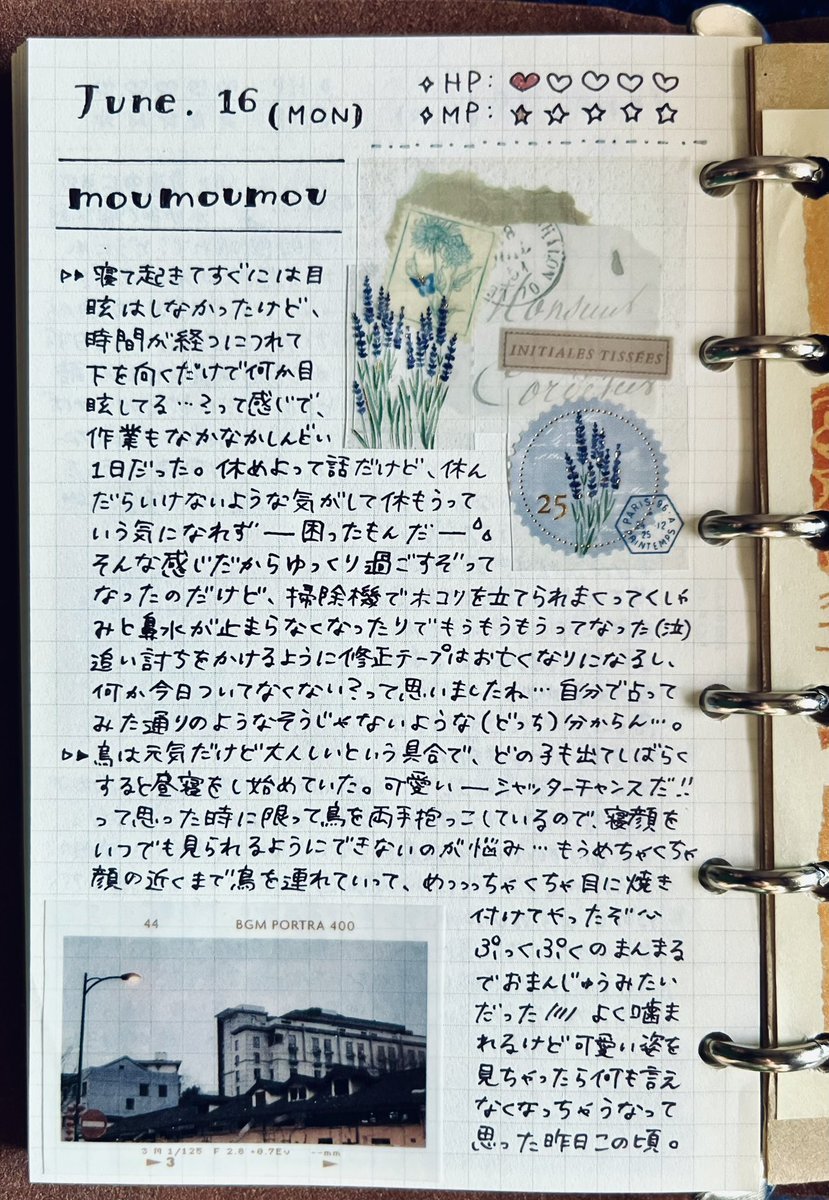 June. 16 (MON)
✧HP: ♥♡♡♡♡
✧MP: ★☆☆☆☆
moumoumou
▷▷寝て起きてすぐには目
眩はしなかったけど、
時間が経つにつれて
下を向くだけで何か目
眩してる…?って感じで、
作業もなかなかしんどい
1日だった。休めよって話だけど、休ん
だらいけないような気がして休もうって
いう気になれず ― 困ったもんだ ―
そんな感じだからゆっくり過ごすぞって
なったのだけど、掃除機でホコリを立てられまくってくしゃ
みと鼻水が止まらなくなったりでもうもうもうってなった(泣)
追い討ちをかけるように修正テープはお亡くなりになるし、
何か今日ついてなくない?って思いましたね…自分で占って
みた通りのようなそうじゃないような(どっち)分からん…。
▷▶鳥は元気だけど大人しいという具合で、どの子も出てしばらく
すると昼寝をし始めていた。可愛い ― シャッターチャンスだ!!
って思った時に限って鳥を両手抱っこしているので、寝顔を
いつでも見られるようにできないのが悩み…もうめちゃくちゃ
顔の近くまで鳥を連れていって、めっっっちゃくちゃ目に焼き
付けてやったぞ〜
ぷっくぷくのまんまる
でおまんじゅうみたい
だった //// よく噛ま
れるけど可愛い姿を
見ちゃったら何も言え
なくなっちゃうなって
思った昨日この頃。
Monsieur
INITIALES TISSÉES
25
PARIS
PRINTEMPS
44 BGM PORTRA 400
3 M 1/125 F 2.8 +0.7Ev --mm
▶3 ▶